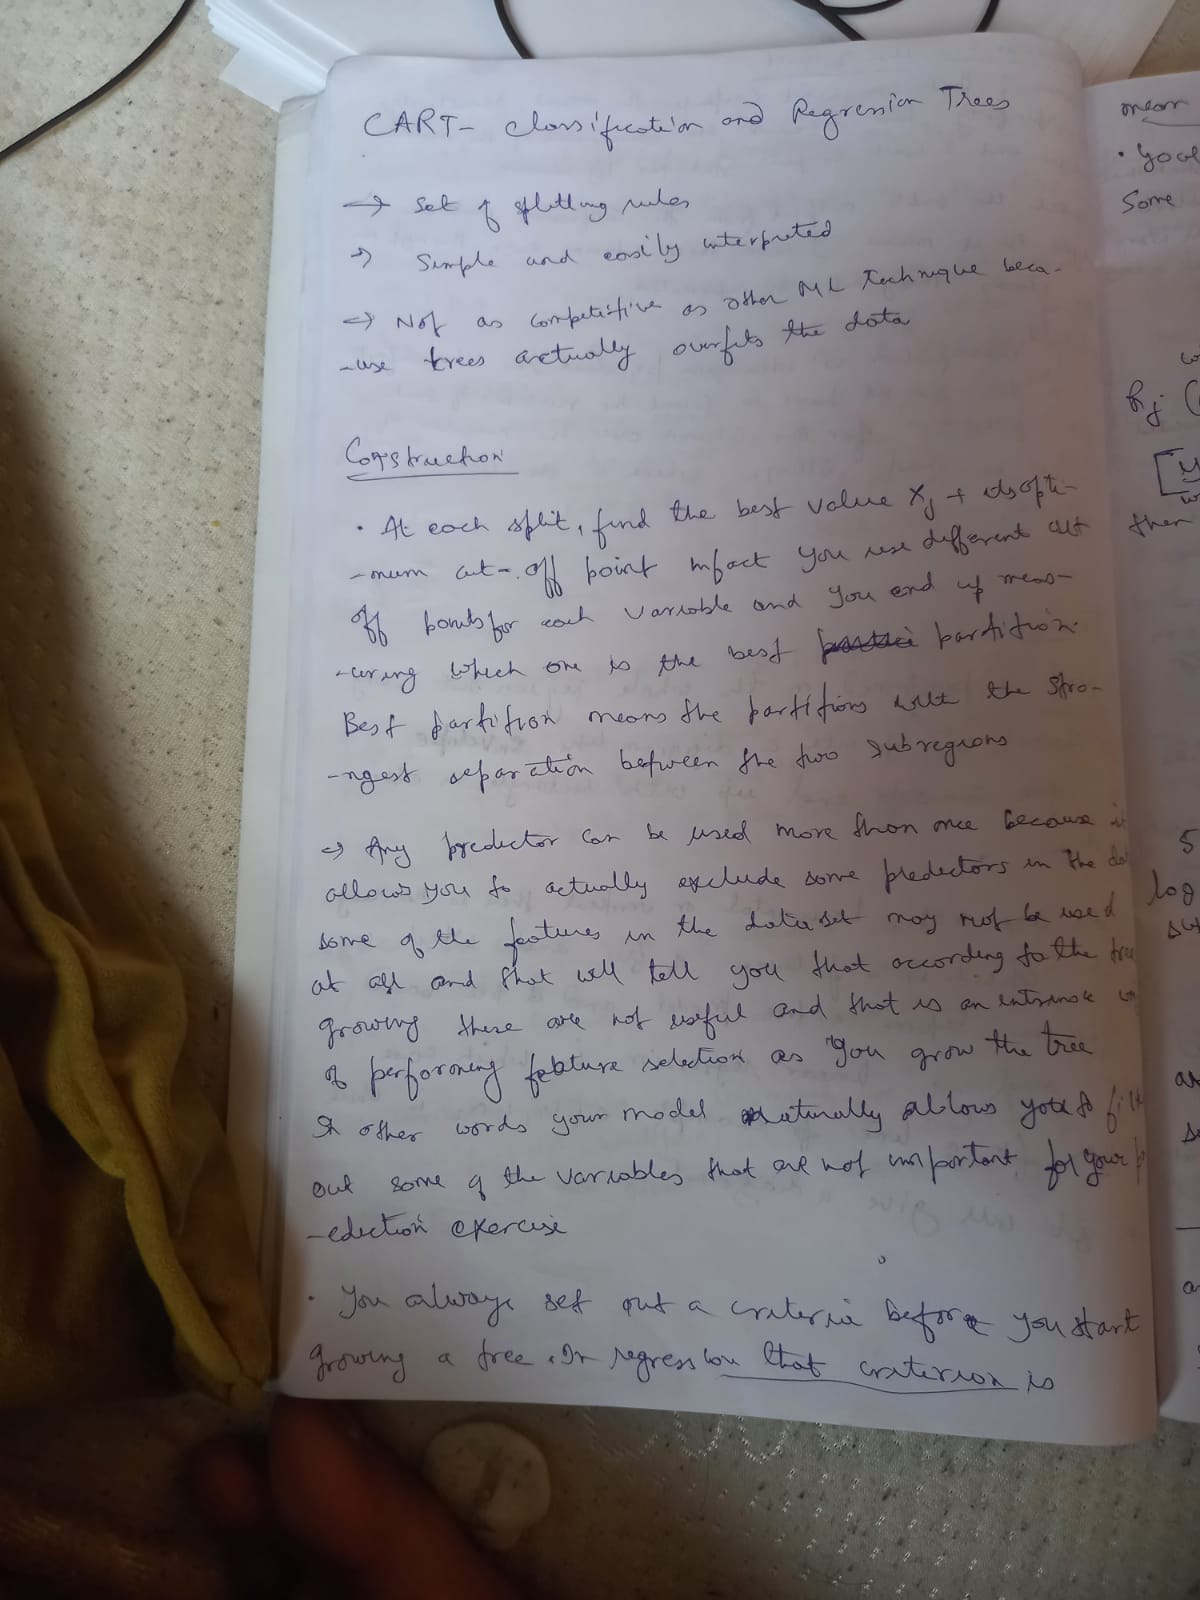 CART- Classification and Regression Trees
→ Set of splitting rules
→ Simple and easily interpreted
→ Not as competitive as other ML technique beca-
-use trees actually overfits the data
Construction
• At each split, find the best value Xj + its opti-
-mum cut-off point infact you use different cut
off points for each variable and you end up meas-
-uring which one is the best partition.
Best partition means the partitions with the stro-
-ngest separation between the two subregions
→ Any predictor can be used more than once because it
allows you to actually exclude some predictors in the
some of the features in the data set may not be used
at all and that will tell you that according to the tree
growing these are not useful and that is an intrinsic
of performing feature selection as you grow the tree
In other words your model naturally allows you to
out some of the variables that are not important for your
-ediction exercise
• You always set out a criteria before you start
growing a tree. In regression that criterion is
mean
•
Some
Rj
then
log